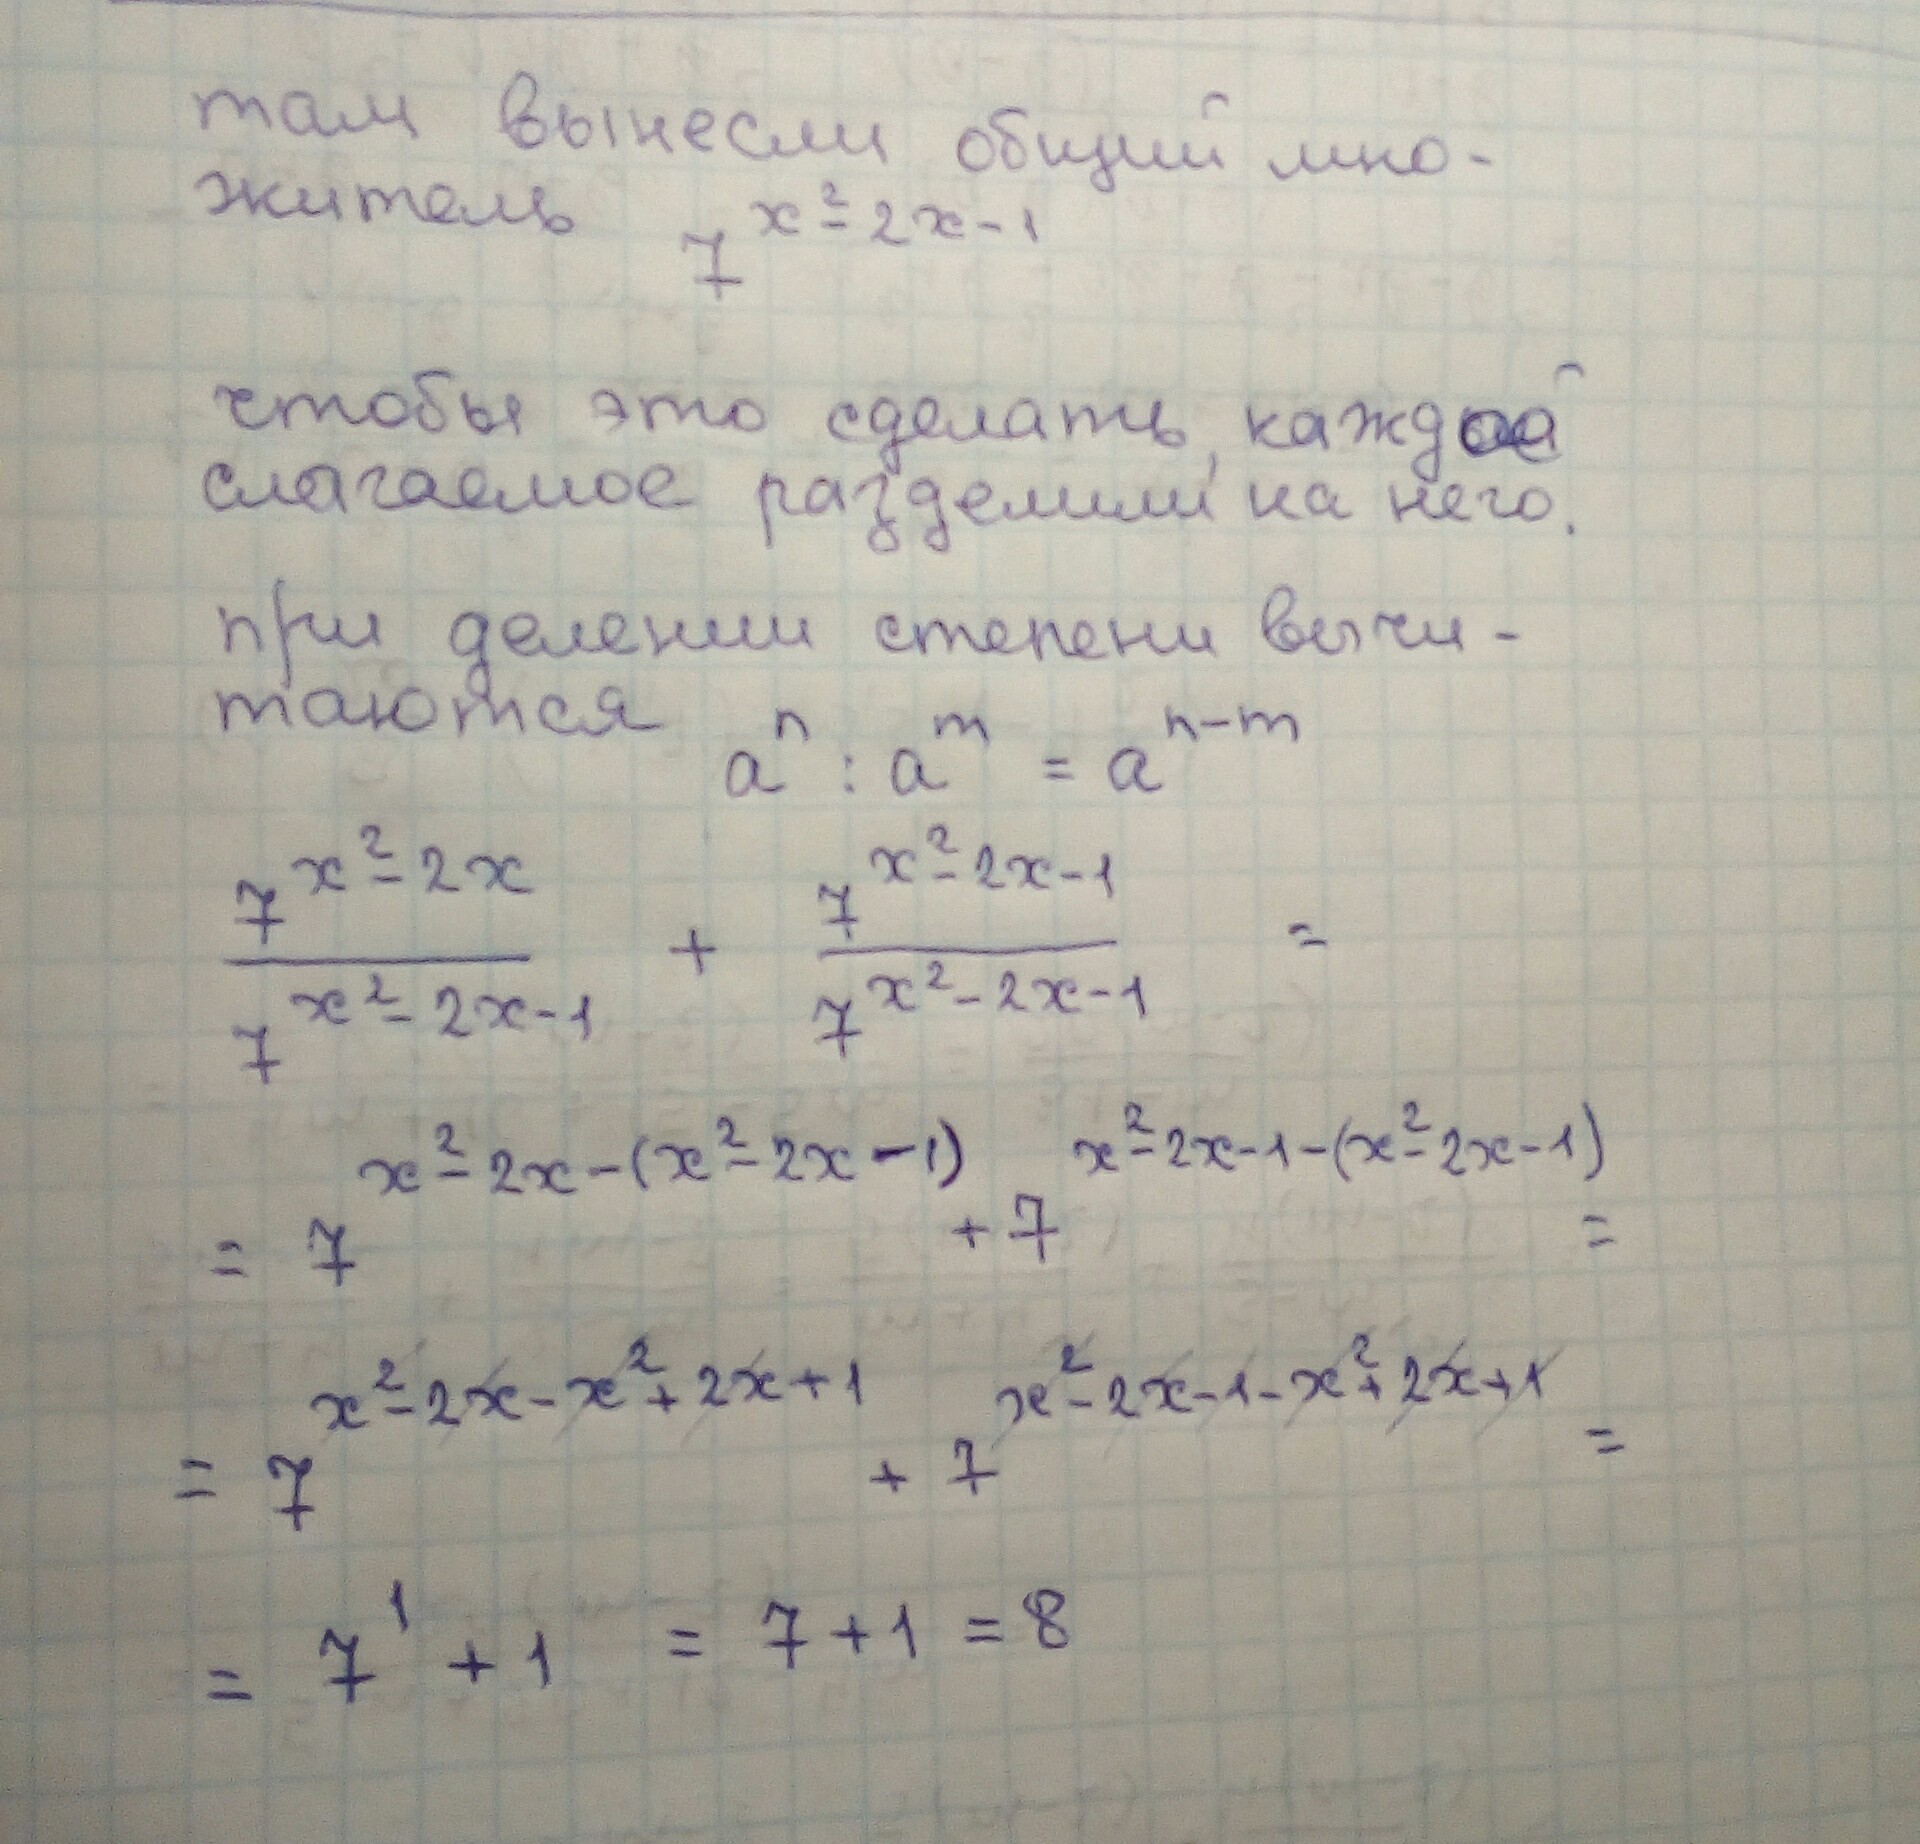 там вынесли общий мно-
житель 7^{x²-2x-1}
чтобы это сделать, каждое
слагаемое разделили на него.
при делении степени вычи-
таются aⁿ : aᵐ = aⁿ⁻ᵐ
7^{x²-2x} / 7^{x²-2x-1} + 7^{x²-2x-1} / 7^{x²-2x-1} =
= 7^{x²-2x-(x²-2x-1)} + 7^{x²-2x-1-(x²-2x-1)} =
= 7^{x²-2x-x²+2x+1} + 7^{x²-2x-1-x²+2x+1} =
= 7¹ + 1 = 7 + 1 = 8